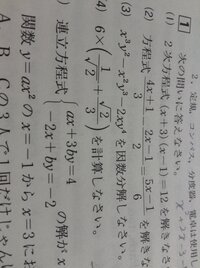 2, 定規, コンパス, 分度器, 電卓は使用し
1 次の問いに答えなさい。
(1) 2次方程式(x+3)(x-1)=12を解きな
(2) 方程式 \frac{4x+1}{3} - \frac{2x-1}{2} = \frac{5x-1}{6} を解き
(3) x³y²-x²y³-2xy⁴を因数分解しなさい。
(4) 6×(\frac{1}{\sqrt{2}}+\frac{\sqrt{2}}{3})を計算しなさい。
) 連立方程式{ax+3by=4 -2x+by=-2 の解が x
関数 y=ax²の x=-1から x=3にお
A, B, Cの3人で1回だけじゃん